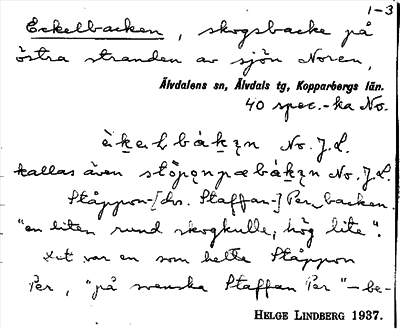 1-3
Eckelbacken, skogsbacke på
östra stranden av sjön Noren,
Älvdalens sn, Älvdals tg, Kopparbergs län.
40 spec.-ka No.
No. J.L.
kallas även No. J.L.
Ståppon-[dvs. Staffan-]Per_backen.
"en liten rund skogkulle, hög lite".
var en som hette Ståppon
Per, "på svenska Staffan Per" – be-
HELGE LINDBERG 1937.